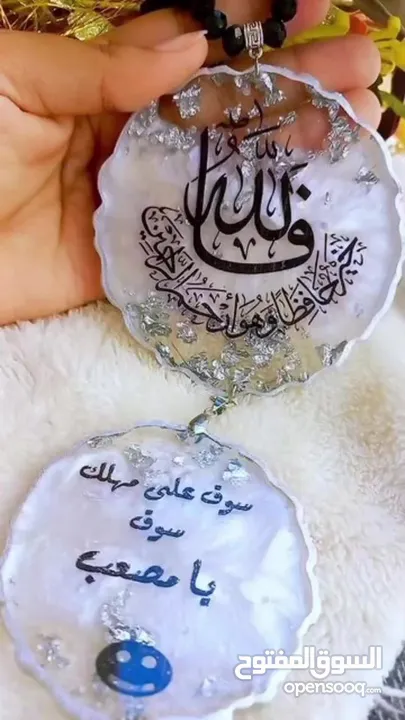 فالله
خير حافظا وهو أرحم الراحمين
سوف على مهلك
سوف
يا مصعب
السوق المفتوح
opensooq.com